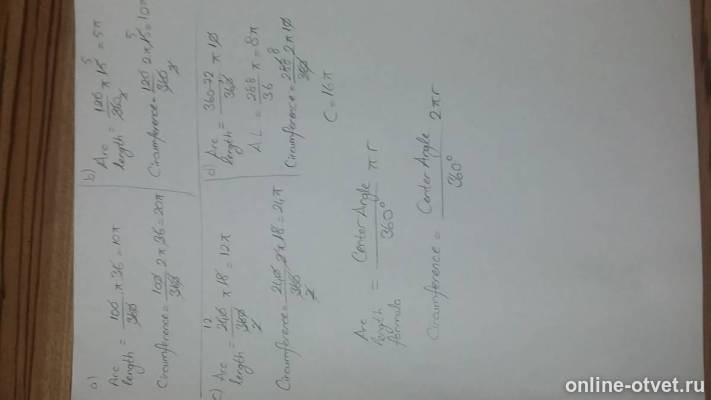 a)
Arc length = 100/360 π 36 = 10π
Circumference = 100/360 2π 36 = 20π
b)
Arc length = 120/360 π 15 = 5π
5
3
Circumference = 120/360 2π 15 = 10π
5
3
c)
Arc length = 240/360 π 18 = 12π
12
2
Circumference = 240/360 2π 18 = 24π
2
d)
Arc length = 360-72/360 π 10
AL = 288/36 π = 8π
Circumference = 288/360 2π 10
8
C = 16π
Arc length formula = Center Angle/360° πr
Circumference = Center Angle/360° 2πr
online-otvet.ru